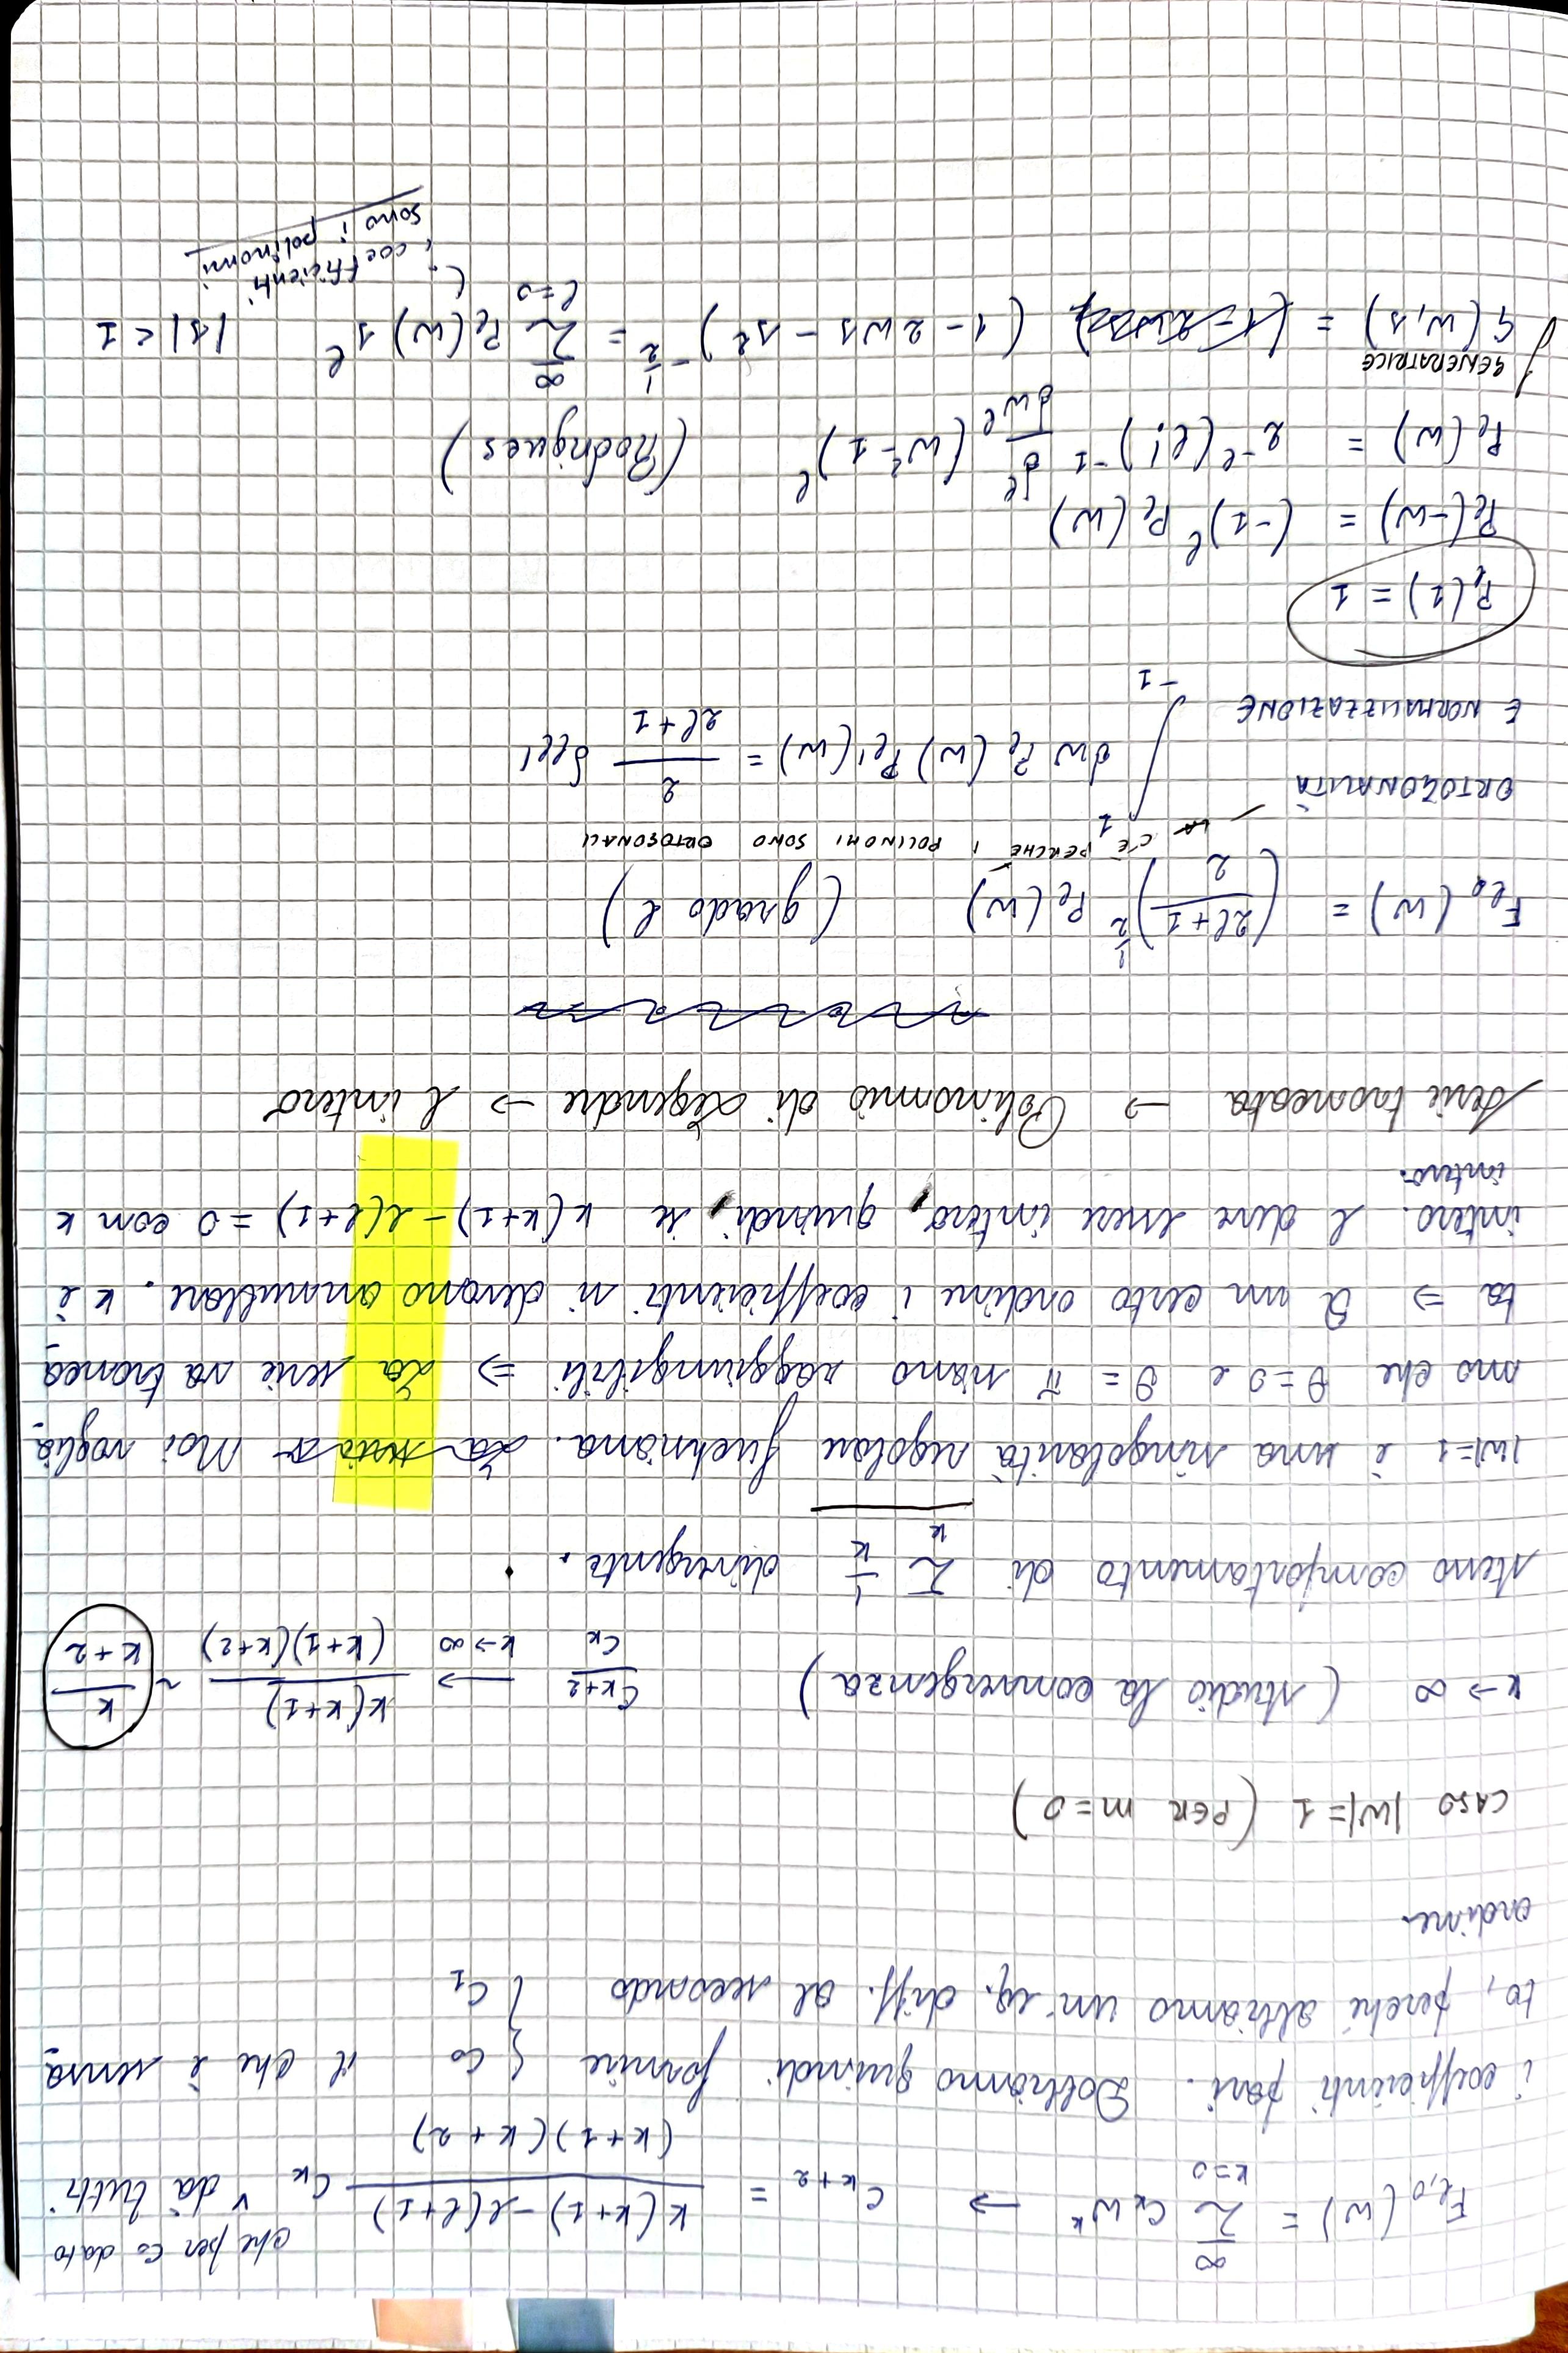 che per C₀ dato
F_{l,0}(w) = Σ_{k=0}^{∞} C_k w^k → C_{k+2} = \frac{k(k+1) - l(l+1)}{(k+1)(k+2)} C_k dà tutti
i coefficienti pari. Dobbiamo quindi fornire { C₀ C₁ il che è sensa
to, perché abbiamo un'eq. diff. al secondo
ordine.
CASO |W|=1 (PER m=0)
k→∞ (studio la convergenza) \frac{C_{k+2}}{C_k} →_{k→∞} \frac{k(k+1)}{(k+1)(k+2)} ~ \frac{k}{k+2}
stesso comportamento di Σ_k \frac{1}{k} divergente.
|w|=1 è una singolarità regolare fuchsiana. La Noi voglia
mo che θ=0 e θ=π siano raggiungibili ⇒ La serie va tronca
ta ⇒ a un certo ordine i coefficienti si devono annullare. k è
intero. l deve essere intero, quindi, se k(k+1) - l(l+1) = 0 con k
intero.
Serie troncata → Polinomio di Legendre → l intero
F_{l0}(w) = (\frac{2l+1}{2})^{\frac{1}{2}} P_l(w) (grado l)
C'È PERCHÉ I POLINOMI SONO ORTOGONALI
ORTOGONALITÀ
E NORMALIZZAZIONE ∫_{-1}^{1} dw P_l(w) P_{l'}(w) = \frac{2}{2l+1} δ_{ll'}
P_l(1) = 1
P_l(-w) = (-1)^l P_l(w)
P_l(w) = 2^{-l} (l!)^{-1} \frac{d^l}{dw^l} (w²-1)^l (Rodrigues)
GENERATRICE
G(w,s) = (1-2ws-s²)^{-\frac{1}{2}} = Σ_{l=0}^{∞} P_l(w) s^l |s|<1
i coefficienti
sono i polinomi